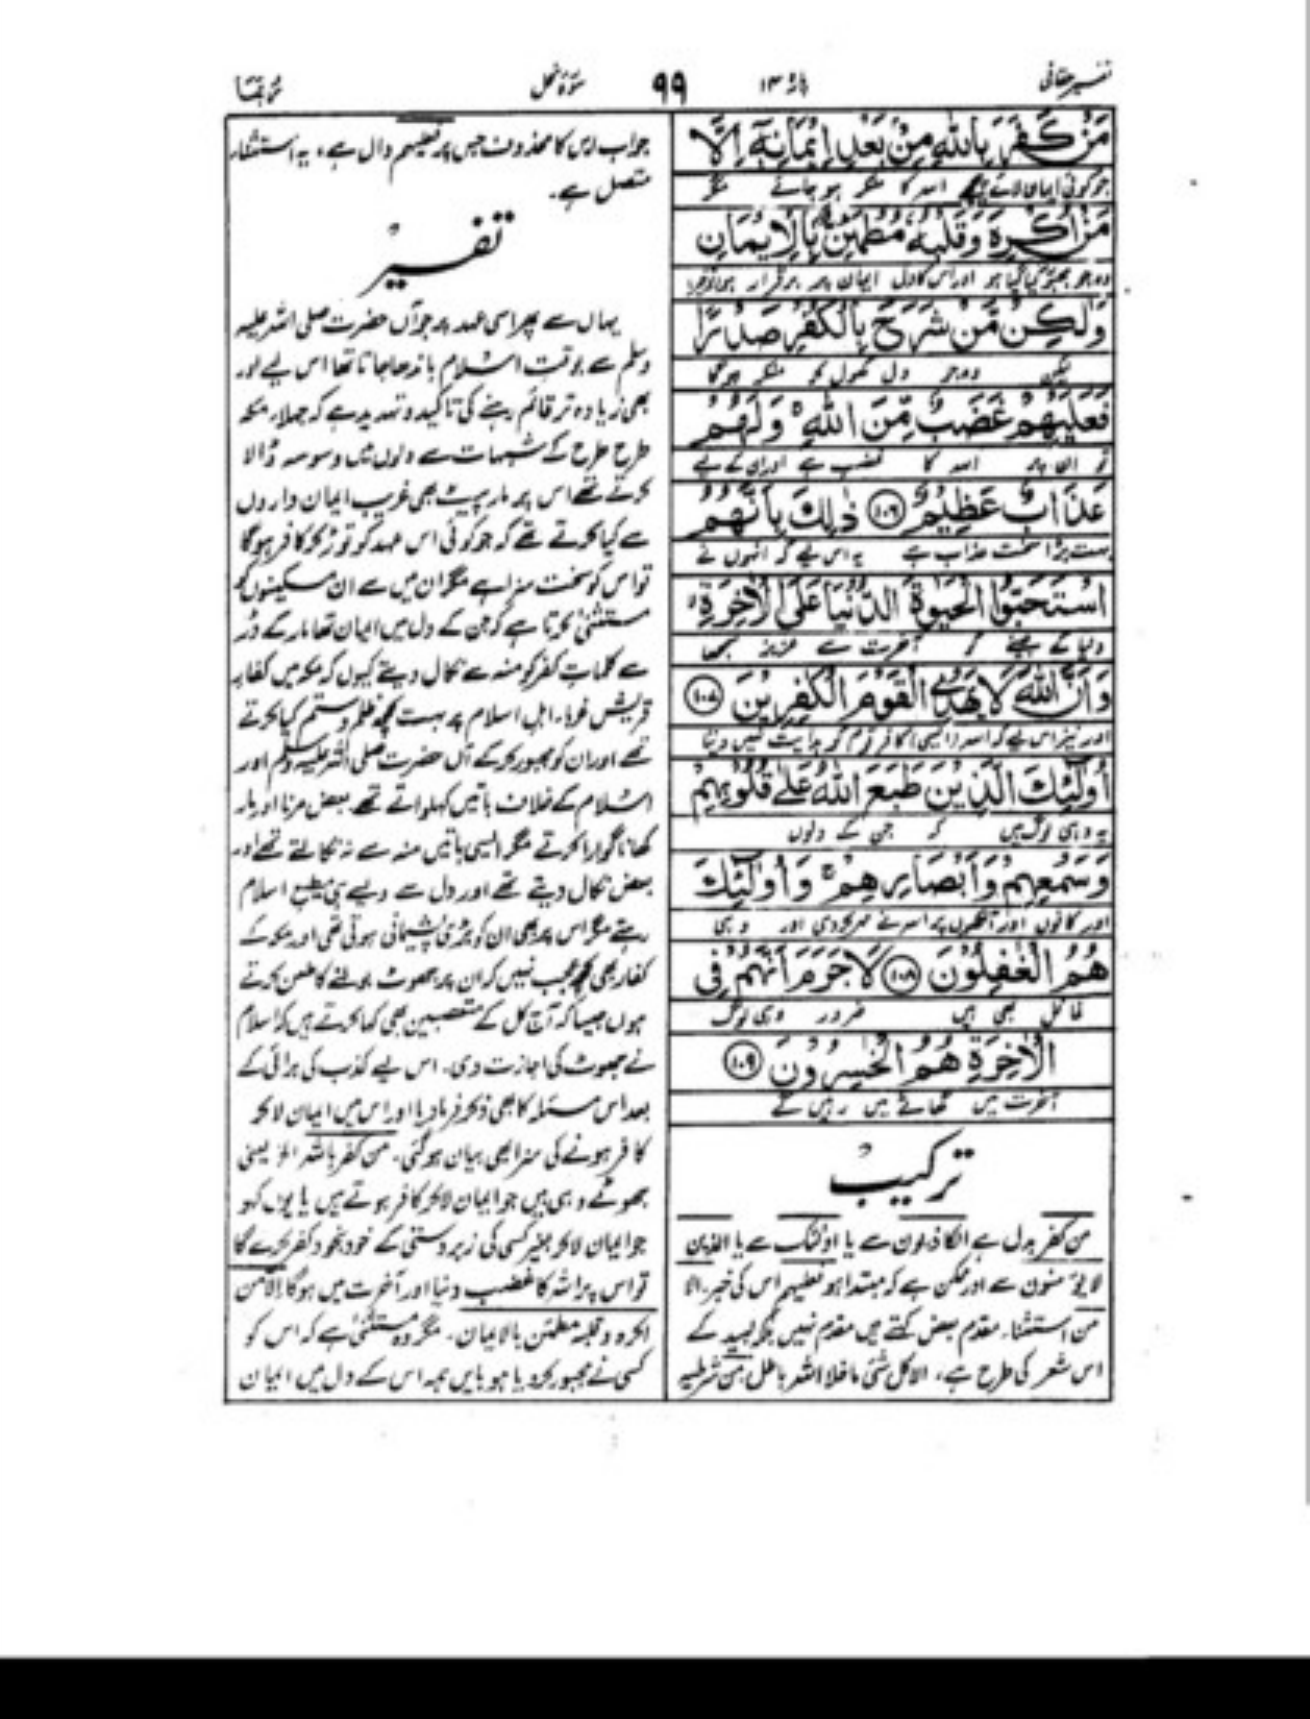 تفسیر حقانی
پارہ ۱۴
۹۹
سورۃ نحل
مَنْ كَفَرَ بِاللّٰهِ مِنْۢ بَعْدِ اِیْمَانِهٖۤ اِلَّا
جو کوئی ایمان لائے پیچھے اللہ کا منکر ہو جائے مگر
مَنْ اُكْرِهَ وَقَلْبُهٗ مُطْمَىِٕنٌّۢ بِالْاِیْمَانِ
وہ جو مجبور کیا گیا ہو اور اس کا دل ایمان پر برقرار ہو
وَلٰكِنْ مَّنْ شَرَحَ بِالْكُفْرِ صَدْرًا
لیکن وہ جو دل کھول کر منکر ہوگا
فَعَلَیْهِمْ غَضَبٌ مِّنَ اللّٰهِ ۚ وَلَهُمْ
تو ان پر اللہ کا غضب ہے اور ان کے لیے
عَذَابٌ عَظِیْمٌ ﴿۱۰۶﴾ ذٰلِكَ بِاَنَّهُمُ
بہت بڑا سخت عذاب ہے یہ اس لیے کہ انہوں نے
اسْتَحَبُّوا الْحَیٰوةَ الدُّنْیَا عَلَى الْاٰخِرَةِ ۙ
دنیا کے جینے کو آخرت سے عزیز سمجھا
وَاَنَّ اللّٰهَ لَا یَهْدِی الْقَوْمَ الْكٰفِرِیْنَ ﴿۱۰۷﴾
اور نیز اس لیے کہ اللہ (ایسی) کافر قوم کو ہدایت نہیں دیتا
اُولٰٓىِٕكَ الَّذِیْنَ طَبَعَ اللّٰهُ عَلٰی قُلُوْبِهِمْ
یہ وہی لوگ ہیں کہ جن کے دلوں
وَسَمْعِهِمْ وَاَبْصَارِهِمْ ۚ وَاُولٰٓىِٕكَ
اور کانوں اور آنکھوں پر اللہ نے مہر کر دی اور وہی
هُمُ الْغٰفِلُوْنَ ﴿۱۰۸﴾ لَا جَرَمَ اَنَّهُمْ فِی
غافل بھی ہیں ضرور وہی لوگ
الْاٰخِرَةِ هُمُ الْخٰسِرُوْنَ ﴿۱۰۹﴾
آخرت میں گھاٹے میں رہیں گے
ترکیب
من کفر بدل ہے الکاذبون سے یا اولٰئک سے یا الذین
لا یؤمنون سے اور ممکن ہے کہ مبتدا ہو فعلیہم اس کی خبر۔ الا
من استثناء مقدم بعض کہتے ہیں مقدم نہیں لبید کے
اس شعر کی طرح ہے، الا کل شئ ما خلا اللہ باطل من شرطیہ
جواب اس کا محذوف جس پر فعلیہم دال ہے، یہ استثناء
متصل ہے۔
تفسیر
یہاں سے پھر اسی عہد پر جو آں حضرت صلی اللہ علیہ
وسلم سے بوقتِ اسلام باندھا جاتا تھا اس لیے اور
بھی زیادہ تر قائم رہنے کی تاکید و تہدید ہے کہ جہلاء مکہ
طرح طرح کے شبہات سے دلوں میں وسوسہ ڈالا
کرتے تھے اس پر مار پیٹ بھی غریب ایمان داروں
سے کیا کرتے تھے کہ جو کوئی اس عہد کو توڑ کر کافر ہوگا
تو اس کو سخت سزا ہے مگر ان میں سے ان مسکینوں کو
مستثنیٰ کرتا ہے کہ جن کے دل میں ایمان تھا مار کے ڈر
سے کلماتِ کفر کو منہ سے نکال دیتے کیوں کہ مکہ میں کفارِ
قریش غرباء اہلِ اسلام پر بہت کچھ ظلم و ستم کیا کرتے
تھے اور ان کو مجبور کر کے آں حضرت صلی اللہ علیہ وسلم اور
اسلام کے خلاف باتیں کہلواتے تھے بعض مرنا اور مار
کھانا گوارا کرتے مگر ایسی باتیں منہ سے نہ نکالتے تھے اور
بعض نکال دیتے تھے اور دل سے ویسے ہی مطیع اسلام
رہتے مگر اس پر بھی ان کو بڑی پشیمانی ہوتی تھی اور مکہ کے
کفار بھی کچھ عجب نہیں کہ ان پر جھوٹ بولنے کا طعن کرتے
ہوں جیسا کہ آج کل کے متعصبین بھی کہا کرتے ہیں کہ اسلام
نے جھوٹ کی اجازت دی۔ اس لیے کذب کی برائی کے
بعد اس مسئلہ کا بھی ذکر فرما دیا اور اس میں ایمان لا کر
کافر ہونے کی سزا بھی بیان ہو گئی۔ من کفر باللہ الخ یعنی
جھوٹے وہی ہیں جو ایمان لا کر کافر ہوتے ہیں یا یوں کہو
جو ایمان لا کر بغیر کسی کی زبردستی کے خود بخود کفر کرے گا
تو اس پر اللہ کا غضب دنیا اور آخرت میں ہوگا الا من
اکرہ و قلبہ مطمئن بالایمان۔ مگر وہ مستثنیٰ ہے کہ اس کو
کسی نے مجبور کر دیا ہو بایں ہمہ اس کے دل میں ایمان